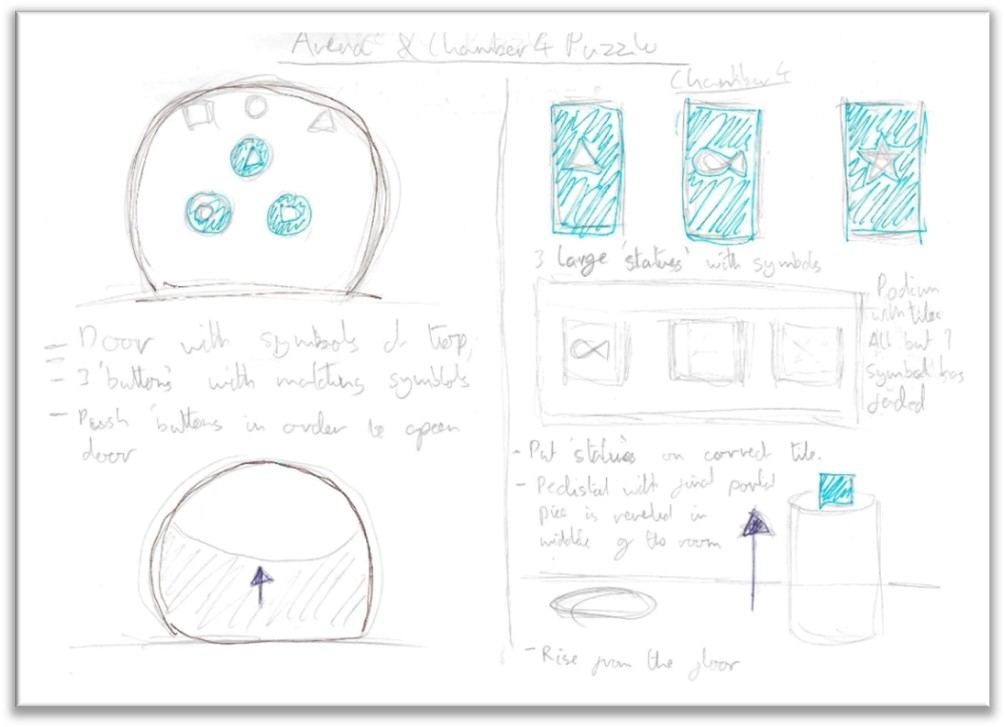 Arena & Chamber 4 Puzzle
- Door with symbols at top,
- 3 'buttons' with matching symbols
- Push 'buttons in order to open
door
Chamber 4
3 Large 'statues' with symbols
Podium
with tiles
All but 1
symbol has
faded
- Put 'statues' on correct tile.
- Pedistal with final portal
piece is reveled in
middle of the room
- Rise from the floor